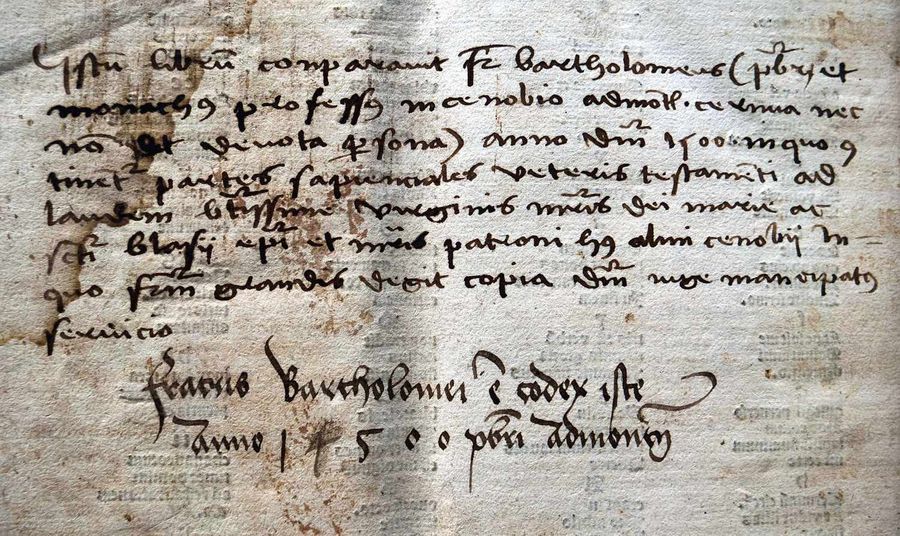 Istū librū conparavit Fr̄ bartholomeus (pb̄r et
monachꝰ professꝰ in cenobio admoñt. cernua nec
nō et devota ꝑsona) anno dn̄i 1500 in quo ꝯ
tinent᷑ partes sapienciales veteris testamēti ad
laudem bt̄issime virginis mr̄is dei marie ac
sct̄i blasii ep̄i et mr̄is patroni hꝰ almi cenobii In
quo fr̄m grandis degit copia dn̄i iuge mancipatꝰ
servicio
fratris Bartholomei ē codex iste
anno 1500 pb̄ri admonten̄